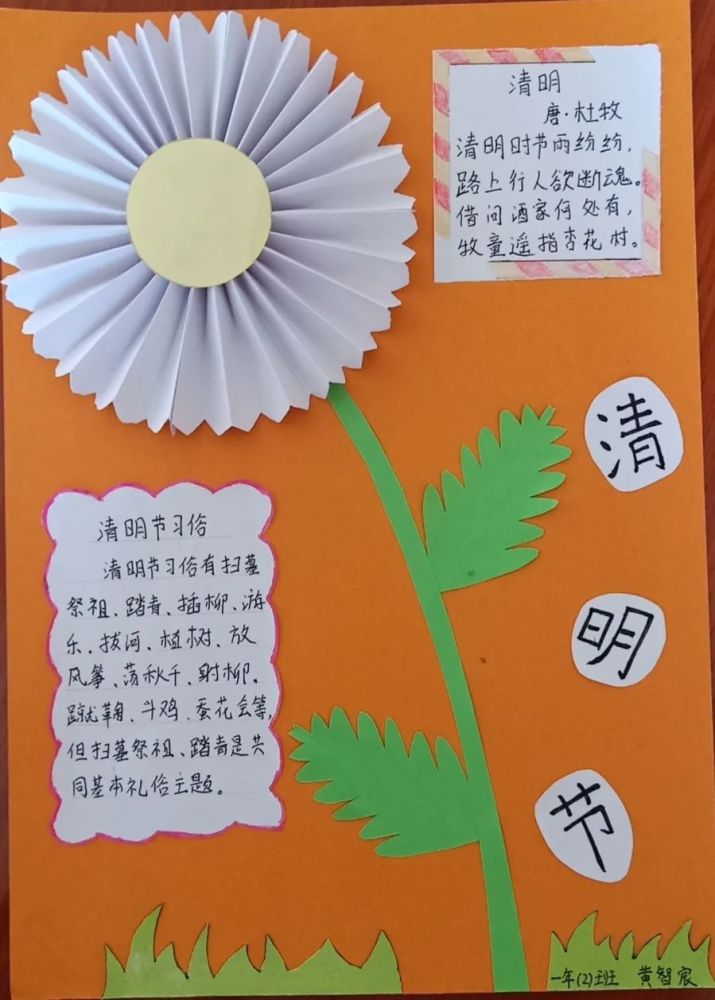 清明
唐·杜牧
清明时节雨纷纷，
路上行人欲断魂。
借问酒家何处有，
牧童遥指杏花村。
清
明
节
清明节习俗
清明节习俗有扫墓
祭祖、踏青、插柳、游
乐、拔河、植树、放
风筝、荡秋千、射柳、
蹴就鞠、斗鸡、蚕花会等，
但扫墓祭祖、踏青是共
同基本礼俗主题。
一年(2)班 黄智宸